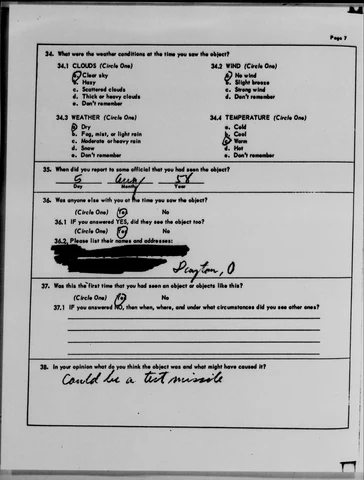 Page 7
34. What were the weather conditions at the time you saw the object?
34.1 CLOUDS (Circle One) 34.2 WIND (Circle One)
a. Clear sky a. No wind
b. Hazy b. Slight breeze
c. Scattered clouds c. Strong wind
d. Thick or heavy clouds d. Don't remember
e. Don't remember
34.3 WEATHER (Circle One) 34.4 TEMPERATURE (Circle One)
a. Dry a. Cold
b. Fog, mist, or light rain b. Cool
c. Moderate or heavy rain c. Warm
d. Snow d. Hot
e. Don't remember e. Don't remember
35. When did you report to some official that you had seen the object?
5 Aug 58
Day Month Year
36. Was anyone else with you at the time you saw the object?
(Circle One) Yes No
36.1 IF you answered YES, did they see the object too?
(Circle One) Yes No
36.2 Please list their names and addresses:
Dayton, O
37. Was this the first time that you had seen an object or objects like this?
(Circle One) Yes No
37.1 IF you answered NO, then when, where, and under what circumstances did you see other ones?
38. In your opinion what do you think the object was and what might have caused it?
Could be a test missile